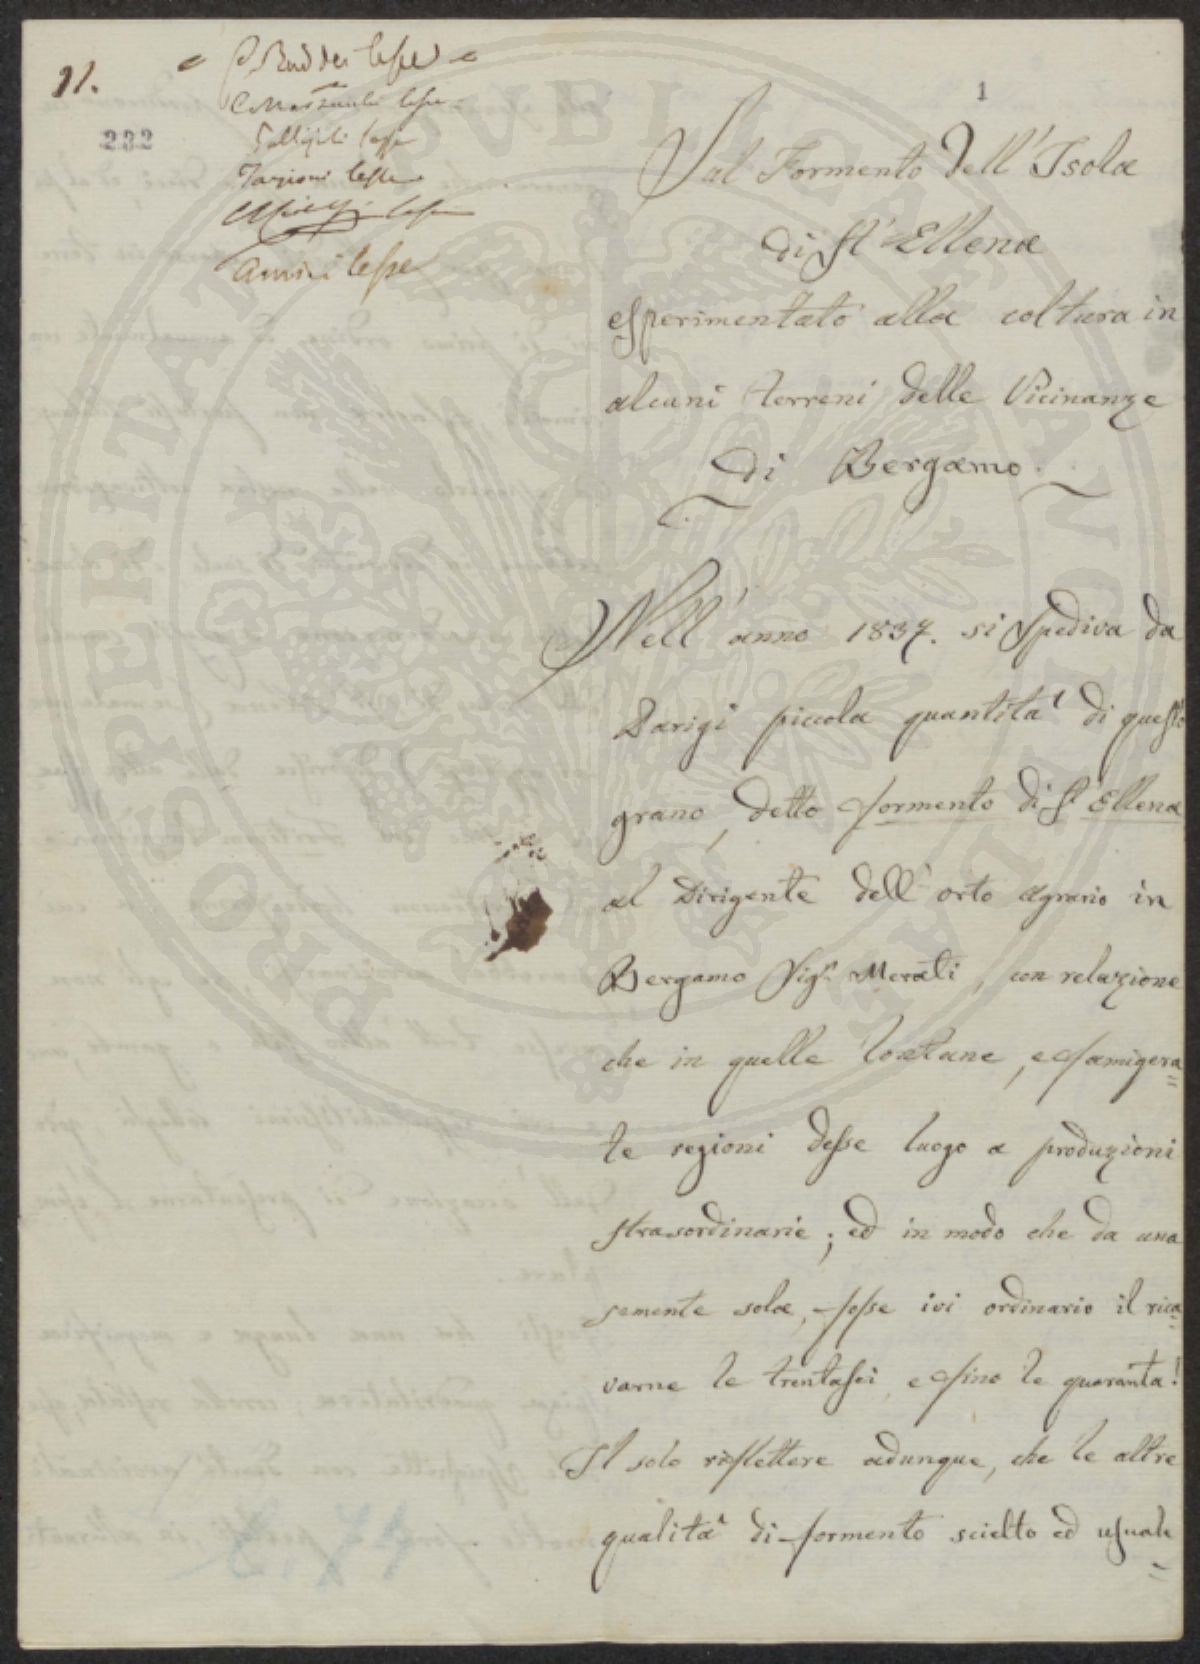 11.
232
C. Taddei lesse
lesse
lesse
Targioni lesse
lesse
Amici lesse
1
Sul Formento dell'Isola
di St. Ellena
esperimentato alla coltura in
alcuni terreni delle Vicinanze
di Bergamo.
Nell'anno 1837. si spediva da
Parigi piccola quantità di questo
grano, detto formento di St. Ellena
al Dirigente dell'orto agrario in
Bergamo Sigr. Merati, con relazione
che in quelle lontane, e famigera=
te regioni desse luogo a produzioni
straordinarie; ed in modo che da una
semente sola, fosse ivi ordinario il rica=
varne le trentasei, e sino le quaranta!
Il solo riflettere adunque, che le altre
qualità di formento scielto ed usuale=
PROSPERITATI PUBLICAE